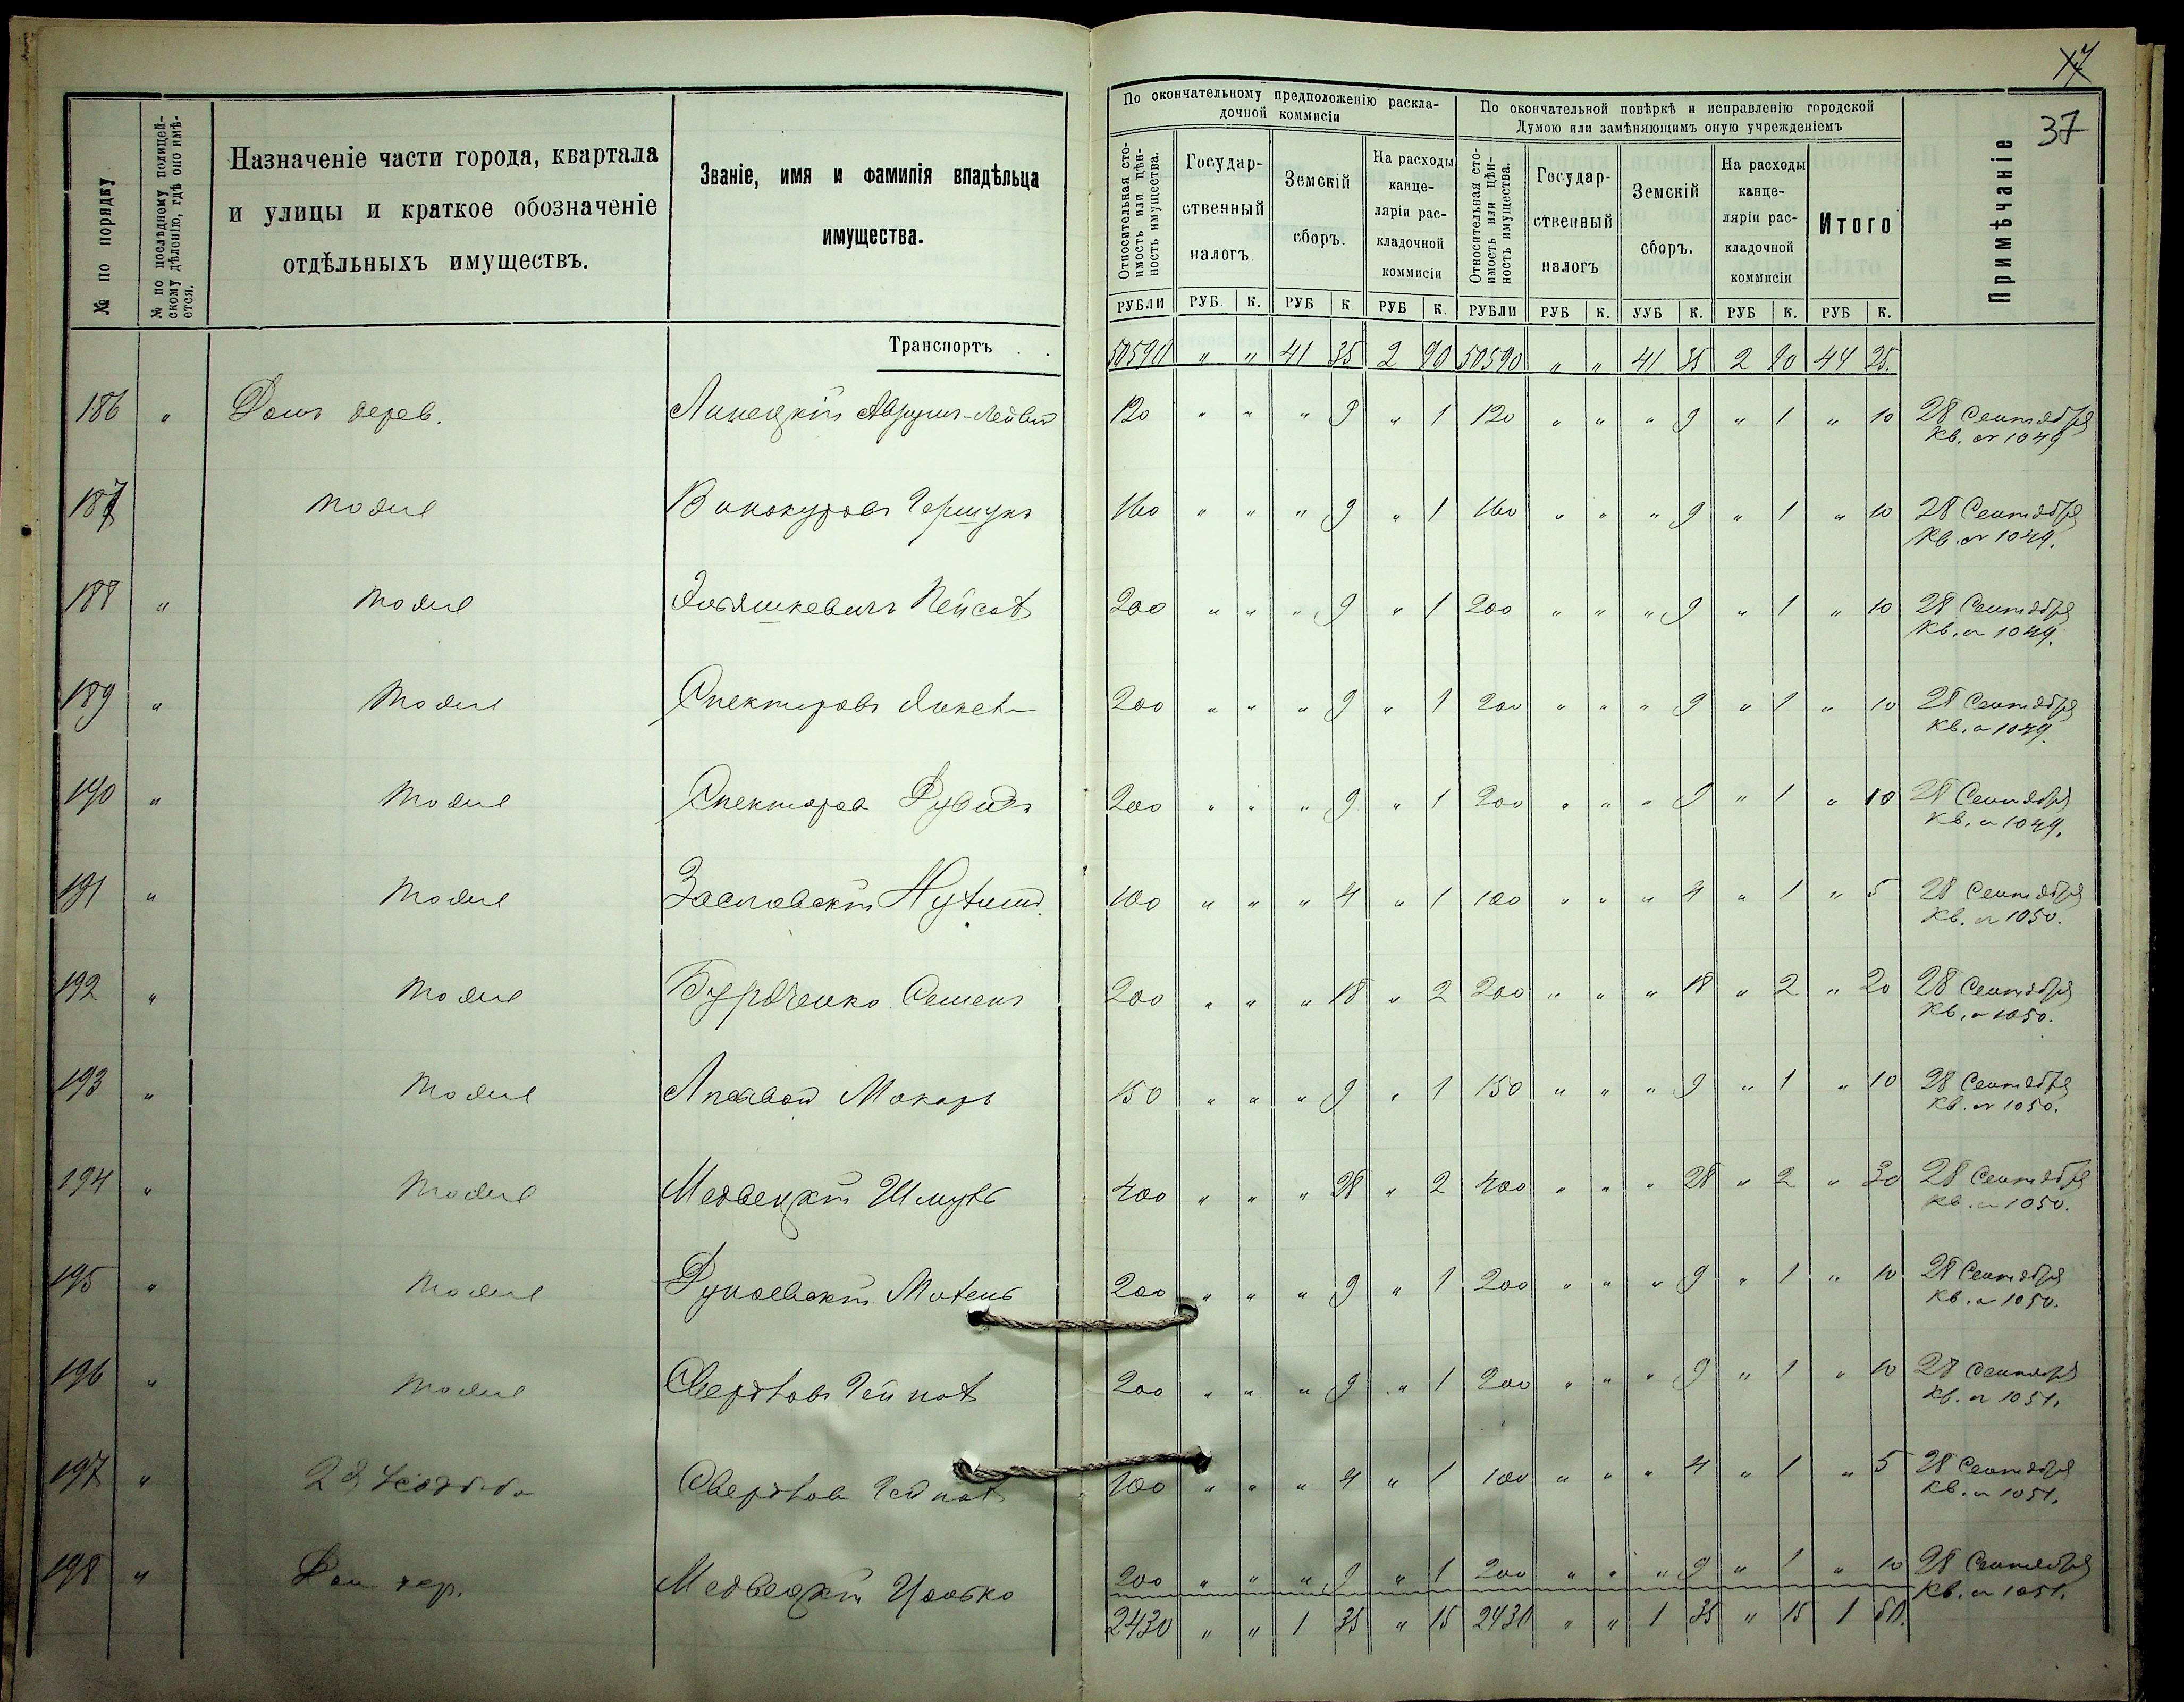 37
№ по порядку
№ по послѣднему полицей-
скому дѣленію, гдѣ оно имѣ-
ется.
Назначеніе части города, квартала
и улицы и краткое обозначеніе
отдѣльныхъ имуществъ.
Званіе, имя и фамилія впадѣльца
имущества.
По окончательному предположенію раскла-
дочной коммисіи
По окончательной повѣркѣ и исправленію городской
Думою или замѣняющимъ оную учрежденіемъ
Относительная сто-
имость или цѣн-
ность имущества.
Государ-
ственный
налогъ
Земскій
сборъ.
На расходы
канце-
ляріи рас-
кладочной
коммисіи
Относительная сто-
имость или цѣн-
ность имущества.
Государ-
ственный
налогъ
Земскій
сборъ.
На расходы
канце-
ляріи рас-
кладочной
коммисіи
Итого
Примѣчаніе
РУБЛИ РУБ. К. РУБ К. РУБ К. РУБЛИ РУБ К. УУБ К. РУБ К. РУБ К.
Транспортъ . . 50590 " " 41 35 2 90 50590 " " 41 35 2 90 44 25.
186 " Домъ дерев. Липецкій 120 " " " 9 " 1 120 " " " 9 " 1 " 10 28 Сентября
Кв. № 1049
187 тоже Винокуровъ Гершунъ 160 " " " 9 " 1 160 " " " 9 " 1 " 10 28 Сентября
Кв. № 1049.
188 " тоже Пейсах 200 " " " 9 " 1 200 " " " 9 " 1 " 10 28 Сентября
Кв. № 1049.
189 " тоже Спекторовъ 200 " " " 9 " 1 200 " " " 9 " 1 " 10 28 Сентября
Кв. № 1049.
190 " тоже Спекторов Рувинъ 200 " " " 9 " 1 200 " " " 9 " 1 " 10 28 Сентября
Кв. № 1049.
191 " тоже Заславскій Нухим 100 " " " 4 " 1 100 " " " 4 " 1 " 5 28 Сентября
Кв. № 1050.
192 " тоже Бурдченко Семенъ 200 " " " 18 " 2 200 " " " 18 " 2 " 20 28 Сентября
Кв. № 1050.
193 " тоже Макаръ 150 " " " 9 " 1 150 " " " 9 " 1 " 10 28 Сентября
Кв. № 1050.
194 " тоже Медвецкій Шмуль 400 " " " 28 " 2 400 " " " 28 " 2 " 30 28 Сентября
Кв. № 1050.
195 " тоже Дунаевскій Мотель 200 " " " 9 " 1 200 " " " 9 " 1 " 10 28 Сентября
Кв. № 1050.
196 " тоже Свердловъ 200 " " " 9 " 1 200 " " " 9 " 1 " 10 28 Сентября
Кв. № 1051.
197 " 2я усадьба Свердлов 100 " " " 4 " 1 100 " " " 4 " 1 " 5 28 Сентября
Кв. № 1051.
198 " Дом дер. Медвецкій 200 " " " 9 " 1 200 " " " 9 " 1 " 10 28 Сентября
Кв. № 1051.
2430 " " 1 35 " 15 2430 " " 1 35 " 15 1 50.